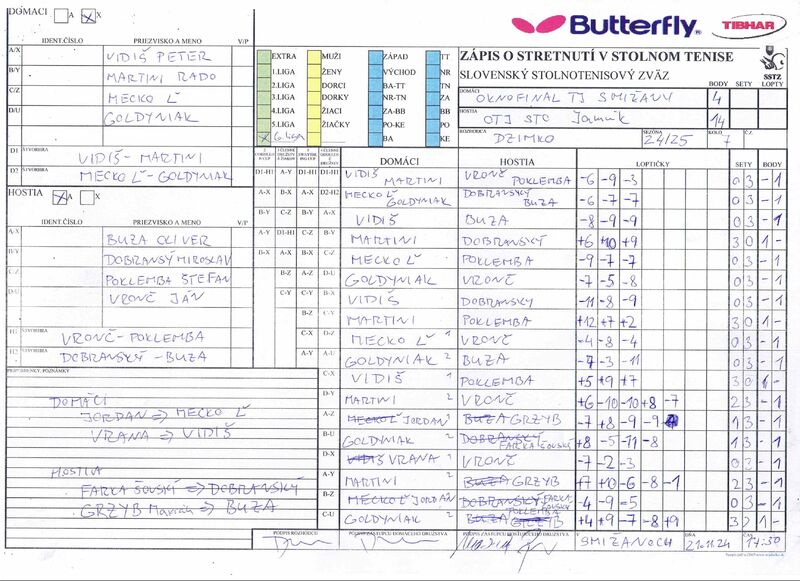 DOMÁCI A X
Butterfly
TIBHAR
IDENT.ČÍSLO PRIEZVISKO A MENO V/P
ZÁPIS O STRETNUTÍ V STOLNOM TENISE
SLOVENSKÝ STOLNOTENISOVÝ ZVÄZ
SSTZ
BODY SETY LOPTY
A/X VIDIŠ PETER
B/Y MARTINI RADO
C/Z MECKO Ľ
D/U GOLDYNIAK
D1 ŠTVORHRA VIDIŠ - MARTINI
D2 MECKO Ľ - GOLDYNIAK
EXTRA MUŽI ZÁPAD TT
1.LIGA ŽENY VÝCHOD NR
2.LIGA DORCI BA-TT TN
3.LIGA DORKY NR-TN ZA
4.LIGA ŽIACI ZA-BB BB
5.LIGA ŽIAČKY PO-KE PO
X 6.liga BA KE
DOMÁCI OKNOFINAL TJ SMIŽANY 4
HOSTIA OTJ STC Jamník 14
ROZHODCA DZIMKO SEZÓNA 24/25 KOLO 7 Č.Z.
HOSTIA X A X
IDENT.ČÍSLO PRIEZVISKO A MENO V/P
A-X BUZA OLIVER
B-Y DOBRANSKÝ MIROSLAV
C-Z POKLEMBA ŠTEFAN
D-U VRONČ JÁN
H1 ŠTVORHRA VRONČ - POKLEMBA
H2 ŠTVORHRA DOBRANSKÝ - BUZA
PRIPOMIENKY, POZNÁMKY
DOMÁCI
JORDAN => MECKO Ľ
VRANA => VIDIŠ
HOSTIA
FARKAŠOVSKÝ => DOBRANSKÝ
GRZYB => BUZA
DOMÁCI HOSTIA LOPTIČKY SETY BODY
D1-H1 VIDIŠ MARTINI VRONČ POKLEMBA -6 -9 -3 0 3 - 1
D2-H2 MECKO Ľ GOLDYNIAK DOBRANSKÝ BUZA -6 -7 -7 0 3 - 1
A-X VIDIŠ BUZA -8 -9 -9 0 3 - 1
B-Y MARTINI DOBRANSKÝ +6 +10 +9 3 0 1 -
C-Z MECKO Ľ POKLEMBA -9 -7 -7 0 3 - 1
D-U GOLDYNIAK VRONČ -7 -5 -8 0 3 - 1
VIDIŠ DOBRANSKY -11 -8 -9 0 3 - 1
MARTINI POKLEMBA +12 +7 +2 3 0 1 -
MECKO Ľ VRONČ -4 -8 -4 0 3 - 1
A-U GOLDYNIAK BUZA -7 -3 -11 0 3 - 1
C-X VIDIŠ POKLEMBA +5 +9 +7 3 0 1 -
D-Y MARTINI VRONČ +6 -10 -10 +8 -7 2 3 - 1
A-Z MECKO Ľ JORDAN BUZA GRZYB -7 +8 -9 -9 1 3 - 1
B-U GOLDYNIAK DOBRANSKÝ FARKAŠOVSKÝ +8 -5 -11 -8 1 3 - 1
D-X VIDIŠ VRANA VRONČ -7 -2 -3 0 3 - 1
A-Y MARTINI BUZA GRZYB +7 +10 -6 -8 -1 2 3 - 1
B-Z MECKO Ľ JORDAN DOBRANSKÝ FARKAŠOVSKÝ -4 -9 -5 0 3 - 1
C-U GOLDYNIAK BUZA GRZYB POKLEMBA +4 +9 -7 -8 +9 3 2 1 -
PODPIS ROZHODCU
PODPIS ZÁSTUPCU DOMÁCEHO DRUŽSTVA
PODPIS ZÁSTUPCU HOSŤUJÚCEHO DRUŽSTVA
V SMIŽANOCH DŇA 21.11.24 ČAS 17:30